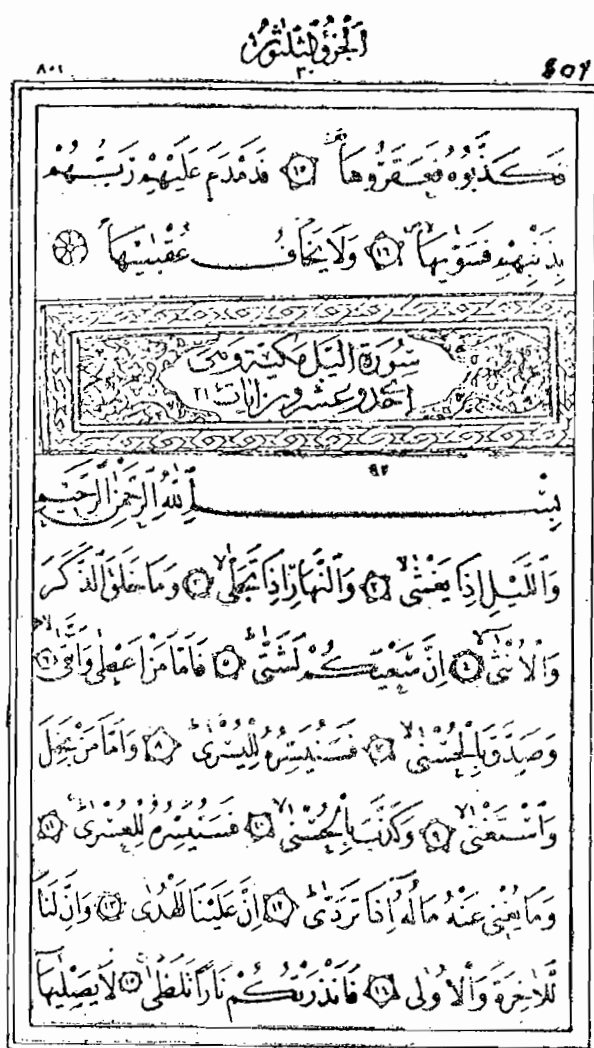 اَلْجُزْؤُ الثَّلٰثُونَ
٨٠١ ٣٠
فَكَذَّبُوهُ فَعَقَرُوهَا ١٥ فَدَمْدَمَ عَلَيْهِمْ رَبُّهُمْ
بِذَنْبِهِمْ فَسَوّٰيهَا ١٦ وَلَا يَخَافُ عُقْبٰيهَا
سُورَةُ الَّيْلِ مَكِّيَّةٌ وَهِىَ
اِحْدٰى وَعِشْرُونَ اٰيَاتٍ ٢١
٩٢
بِسْمِ اللّٰهِ الرَّحْمٰنِ الرَّحِيمِ
وَالَّيْلِ اِذَا يَغْشٰى ٢ وَالنَّهَارِ اِذَا تَجَلّٰى ٣ وَمَا خَلَقَ الذَّكَرَ
وَالْاُنْثٰى ٤ اِنَّ سَعْيَكُمْ لَشَتّٰى ٥ فَاَمَّا مَنْ اَعْطٰى وَاتَّقٰى ٦
وَصَدَّقَ بِالْحُسْنٰى ٧ فَسَنُيَسِّرُهُ لِلْيُسْرٰى ٨ وَاَمَّا مَنْ بَخِلَ
وَاسْتَغْنٰى ٩ وَكَذَّبَ بِالْحُسْنٰى ١٠ فَسَنُيَسِّرُهُ لِلْعُسْرٰى ١١
وَمَا يُغْنِى عَنْهُ مَالُهُ اِذَا تَرَدّٰى ١٢ اِنَّ عَلَيْنَا لَلْهُدٰى ١٣ وَاِنَّ لَنَا
لَلْاٰخِرَةَ وَالْاُولٰى ١٤ فَاَنْذَرْتُكُمْ نَارًا تَلَظّٰى ١٥ لَا يَصْلٰيهَا